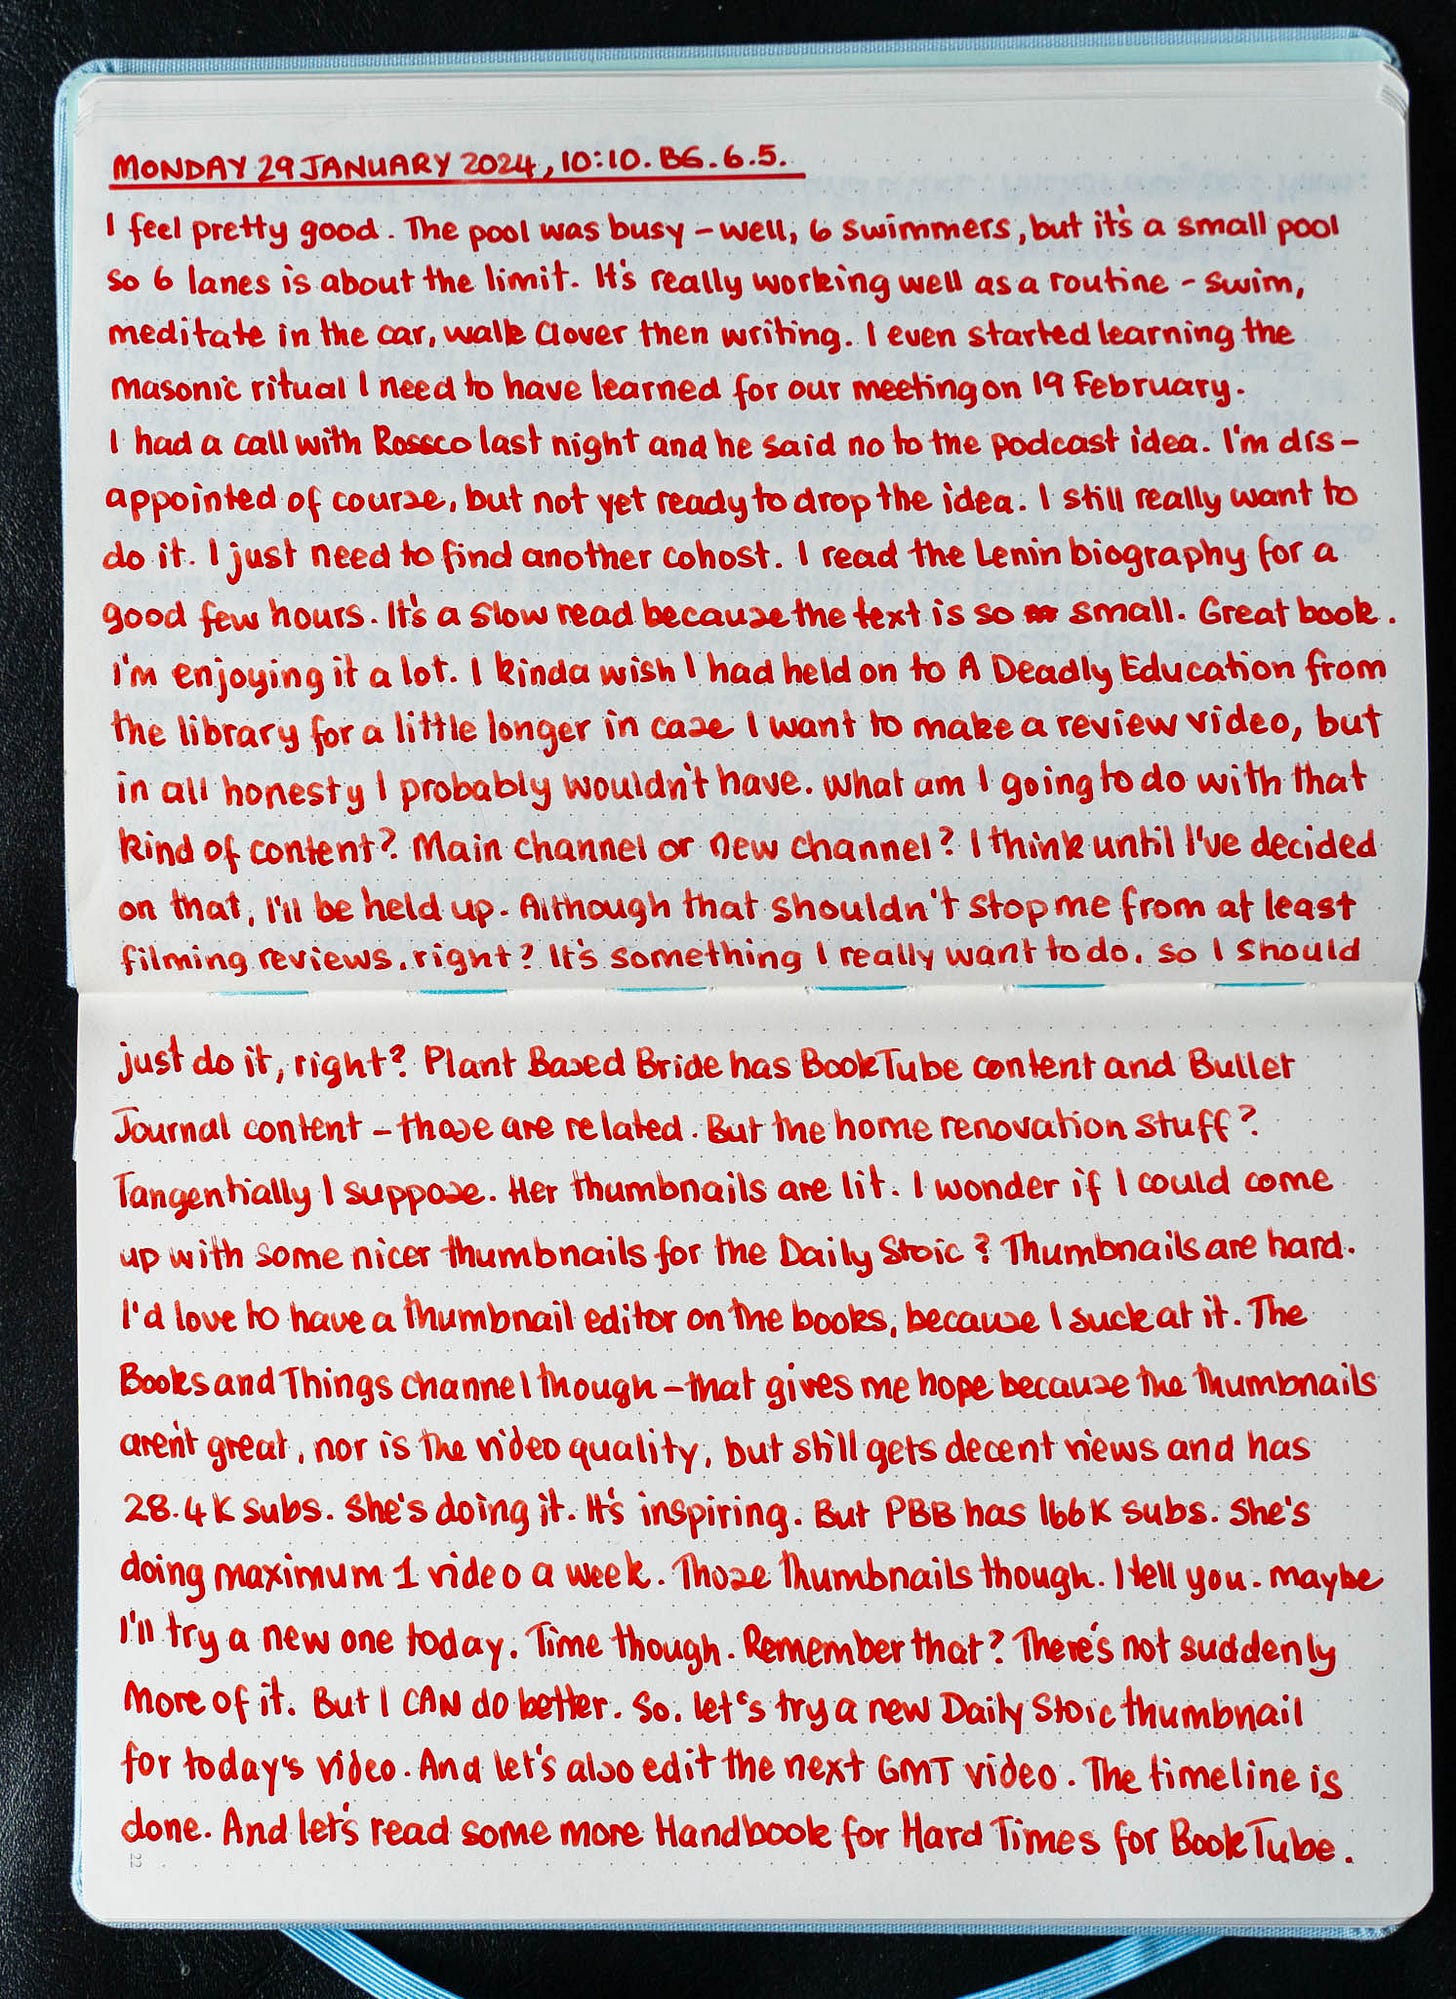 MONDAY 29 JANUARY 2024, 10:10. BG. 6.5.
I feel pretty good. The pool was busy – well, 6 swimmers, but it's a small pool
so 6 lanes is about the limit. It's really working well as a routine – swim,
meditate in the car, walk Clover then writing. I even started learning the
masonic ritual I need to have learned for our meeting on 19 February.
I had a call with Rossco last night and he said no to the podcast idea. I'm dis-
appointed of course, but not yet ready to drop the idea. I still really want to
do it. I just need to find another cohost. I read the Lenin biography for a
good few hours. It's a slow read because the text is so small. Great book.
I'm enjoying it a lot. I kinda wish I had held on to A Deadly Education from
the library for a little longer in case I want to make a review video, but
in all honesty I probably wouldn't have. What am I going to do with that
kind of content? Main channel or new channel? I think until I've decided
on that, I'll be held up. Although that shouldn't stop me from at least
filming reviews, right? It's something I really want to do, so I should
just do it, right? Plant Based Bride has BookTube content and Bullet
Journal content – those are related. But the home renovation stuff?
Tangentially I suppose. Her thumbnails are lit. I wonder if I could come
up with some nicer thumbnails for the Daily Stoic? Thumbnails are hard.
I'd love to have a thumbnail editor on the books, because I suck at it. The
Books and Things channel though – that gives me hope because the thumbnails
aren't great, nor is the video quality, but still gets decent views and has
28.4K subs. She's doing it. It's inspiring. But PBB has 166K subs. She's
doing maximum 1 video a week. Those thumbnails though. I tell you. Maybe
I'll try a new one today. Time though. Remember that? There's not suddenly
more of it. But I CAN do better. So. let's try a new Daily Stoic thumbnail
for today's video. And let's also edit the next GMT video. The timeline is
done. And let's read some more Handbook for Hard Times for BookTube.